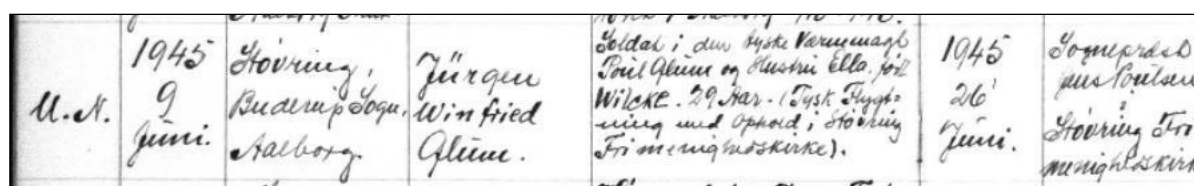 U. N.
1945
9
Juni.
Støvring,
Buderup Sogn,
Aalborg.
Jürgen
Winfried
Glüm.
Soldat i den tyske Værnemagt
Poul Glüm og Hustru Ella, født
Wilcke. 29 Aar. (Tysk Flygt-
ning med Ophold i Støvring
Frimenighedskirke).
1945
26
Juni.
Sognepræst
Poulsen
Støvring Fri
menighedskirk